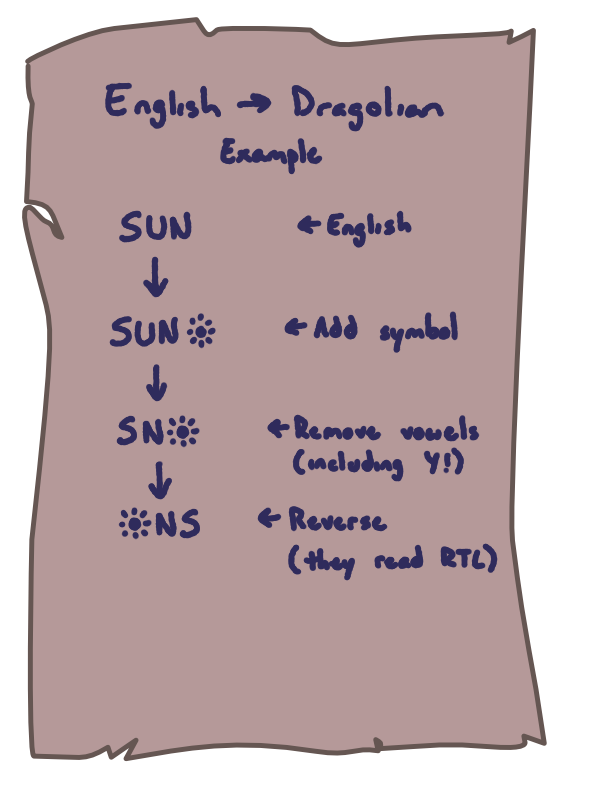 English → Dragolian
Example
SUN ← English
↓
SUN☀ ← Add symbol
↓
SN☀ ← Remove vowels
(including Y!)
↓
☀NS ← Reverse
(they read RTL)